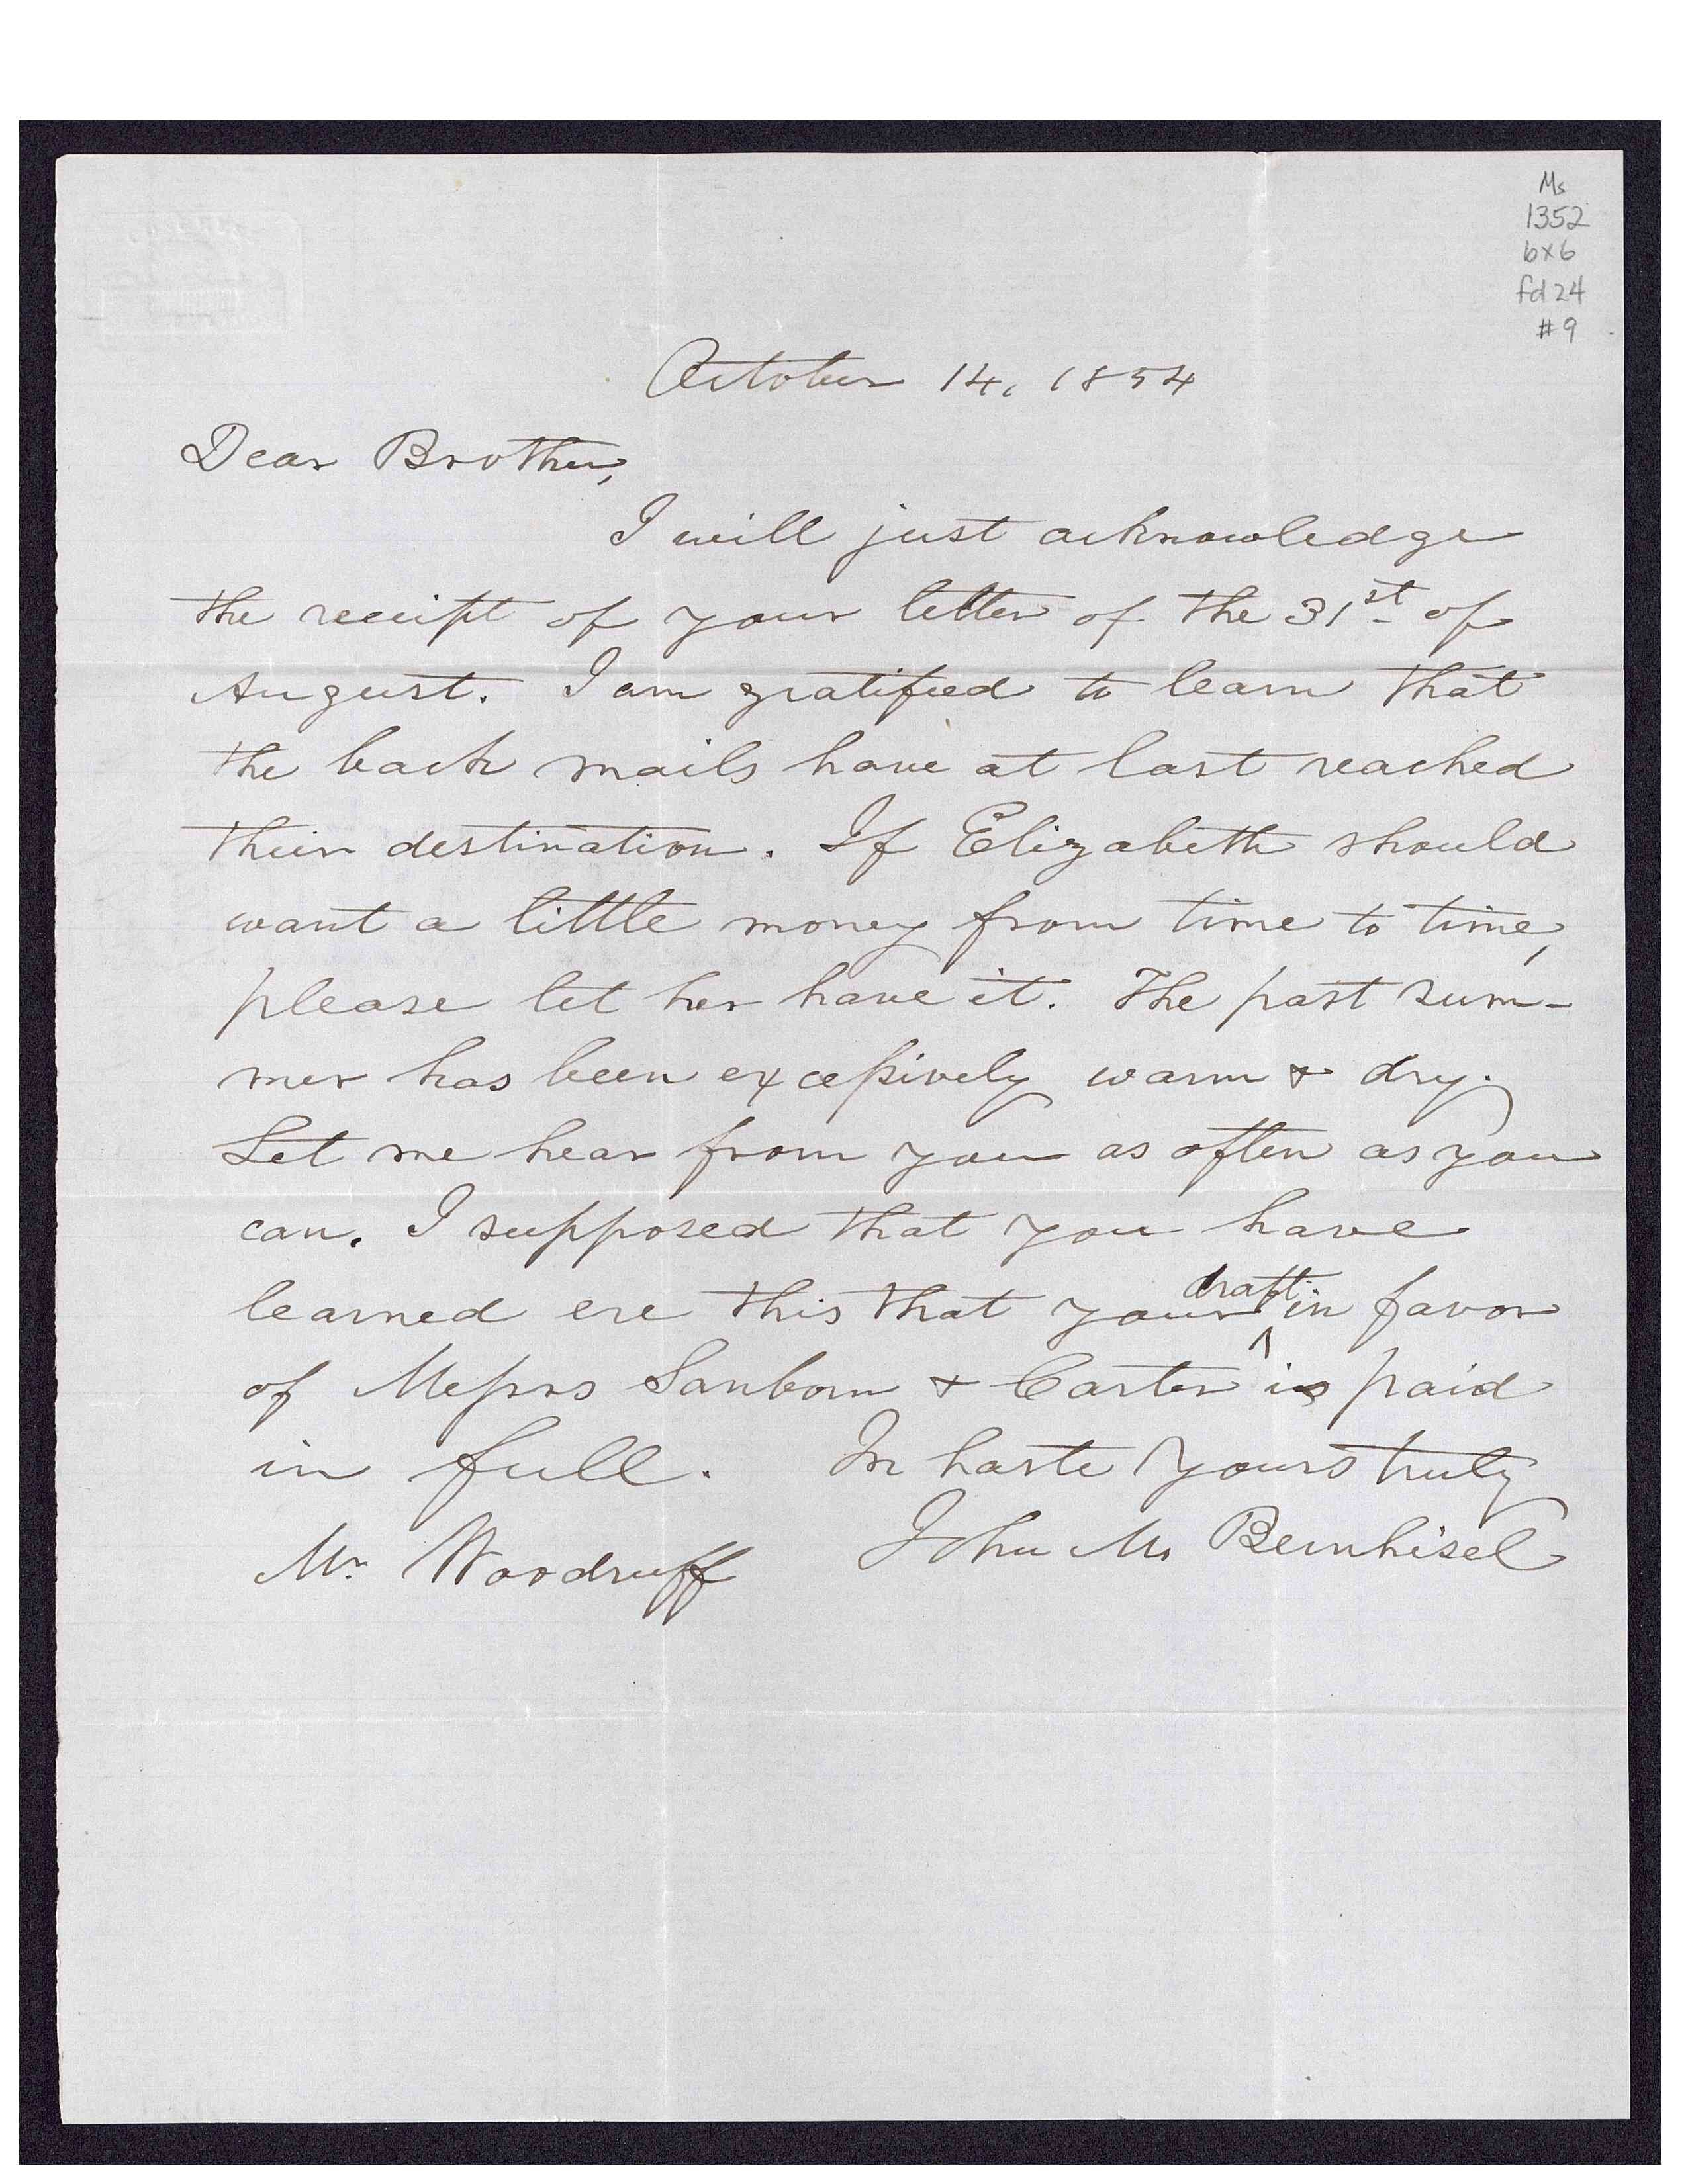 Ms
1352
bx6
fd 24
#9
October 14, 1854
Dear Brother,
I will just acknowledge
the receipt of your letter of the 31st of
August. I am gratified to learn that
the back mails have at last reached
their destination. If Elizabeth should
want a little money from time to time,
please let her have it. The past sum-
mer has been excessively warm & dry.
Let me hear from you as often as you
can. I supposed that you have
draft
learned ere this that your ^ in favor
of Messrs Sanborn & Carter is paid
in full. In haste Yours truly
Mr. Woodruff John M. Bernhisel